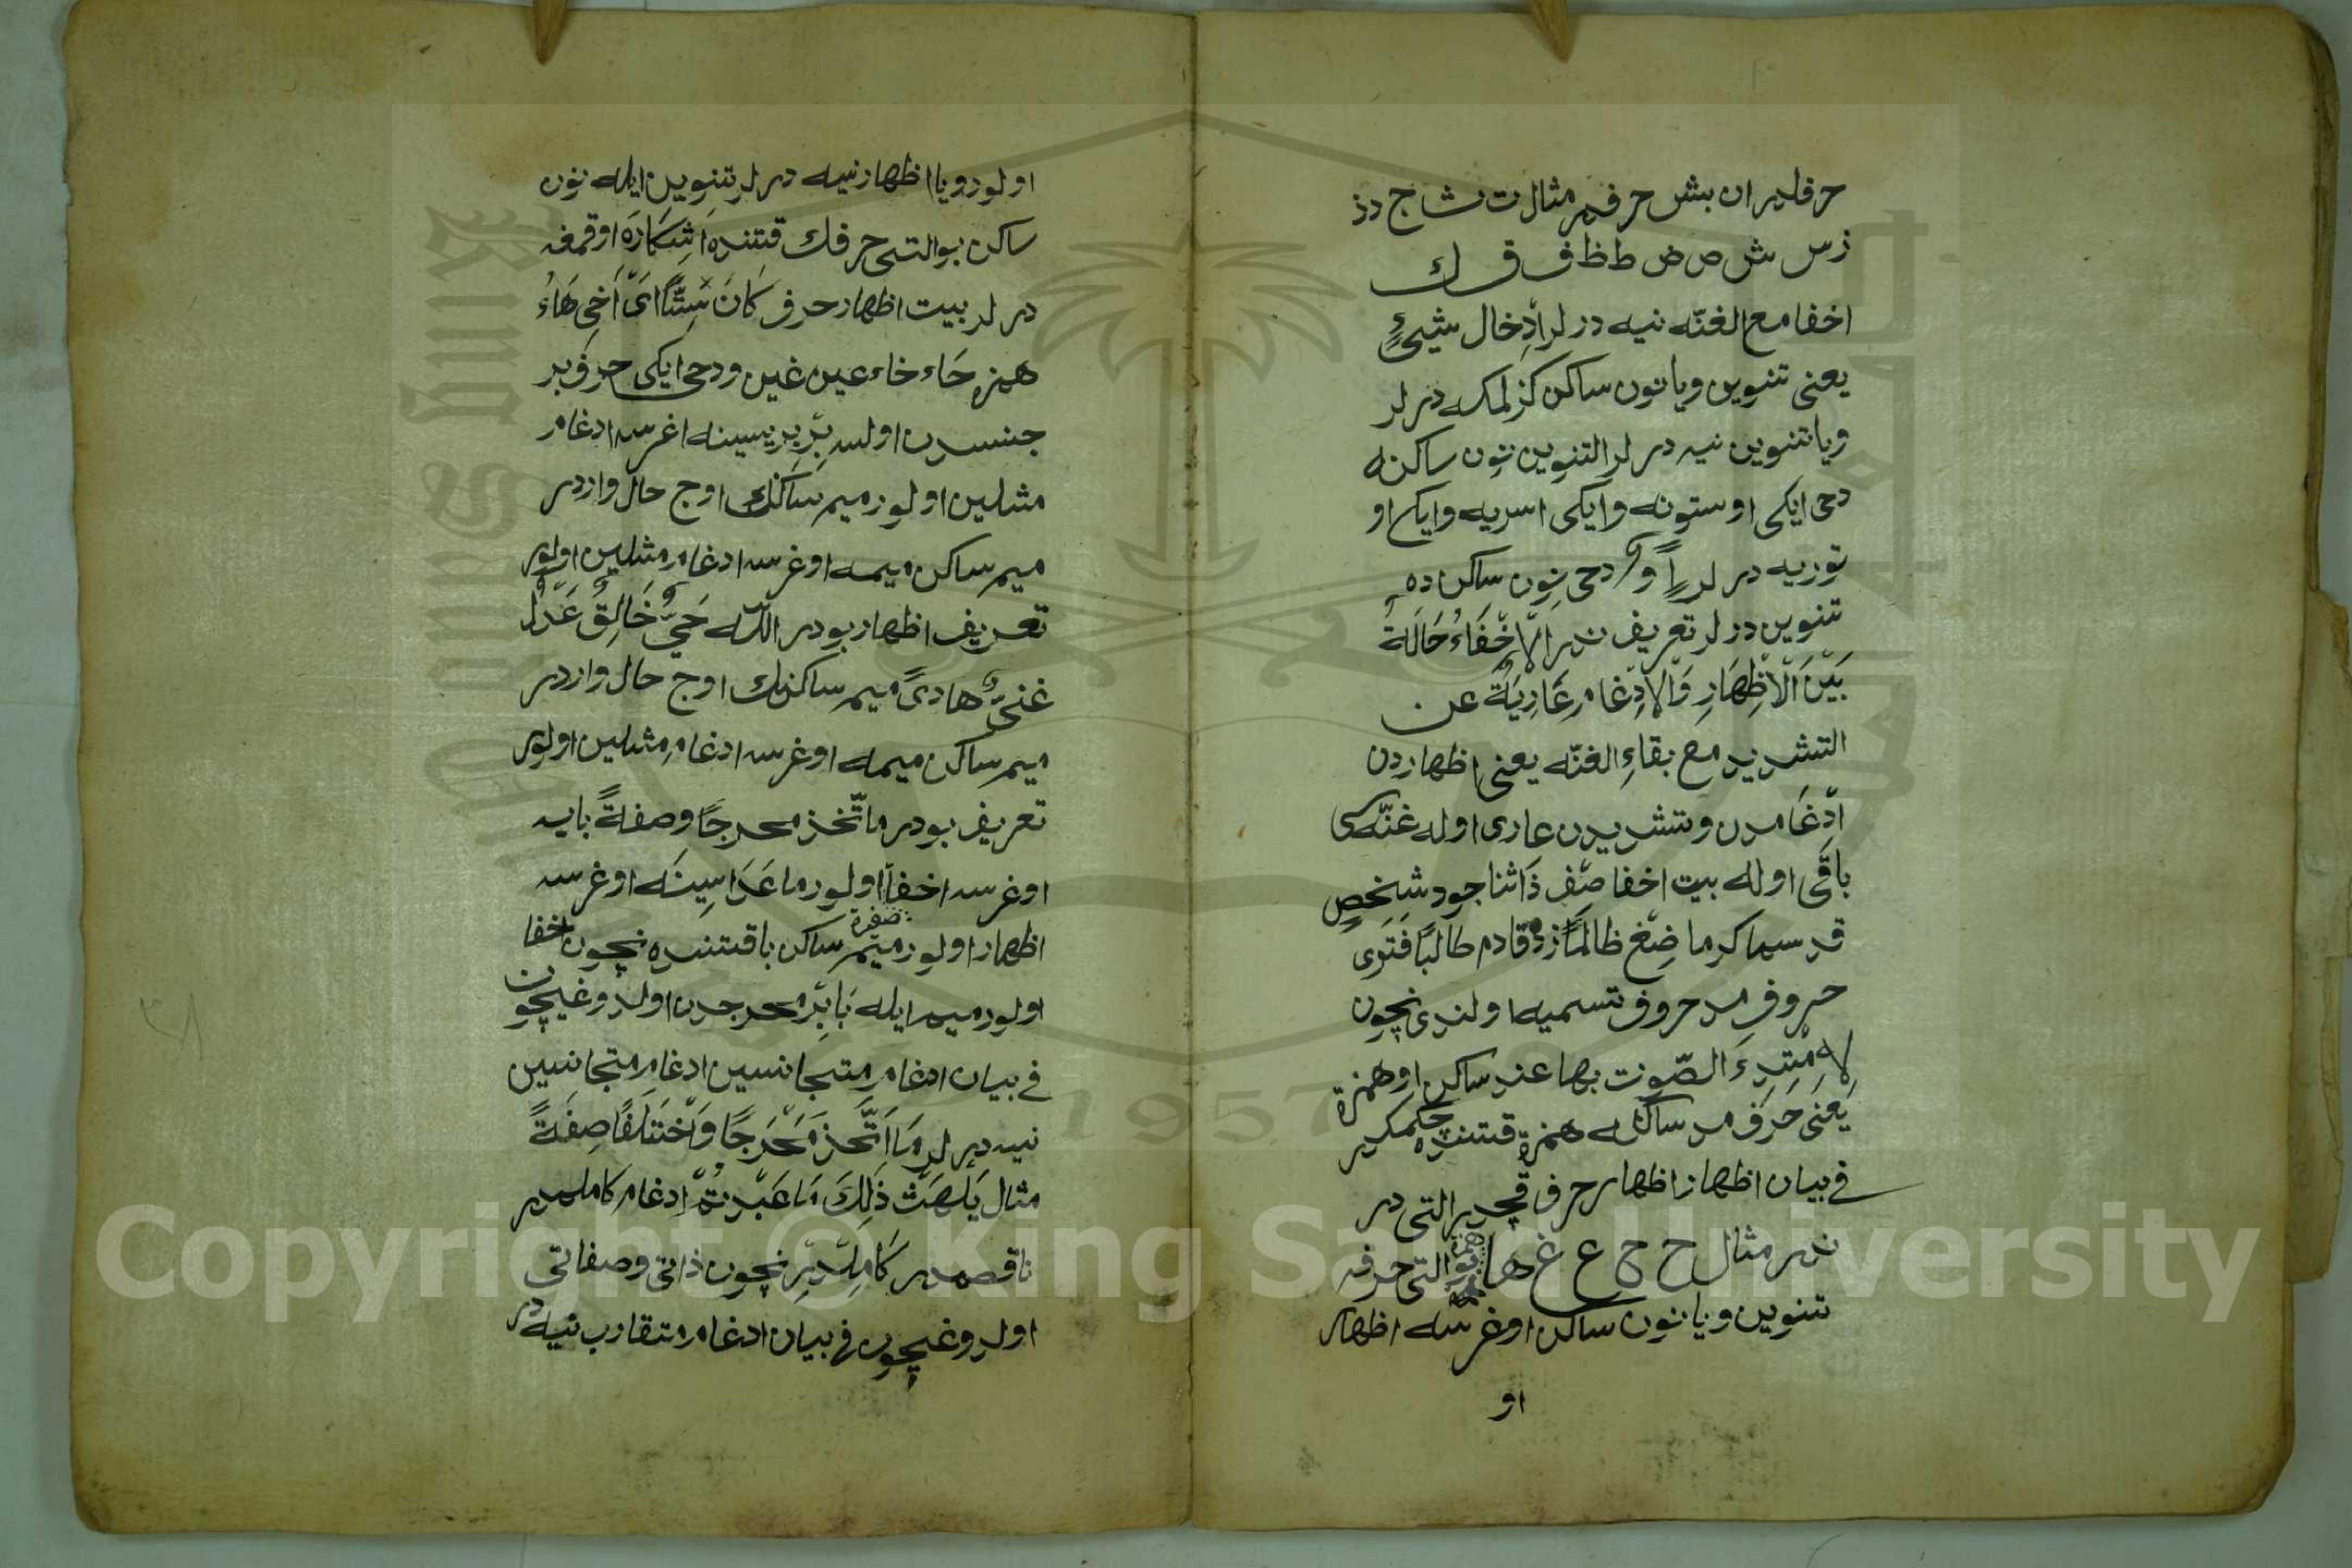 حرفلر ان بش حرفدر مثال ت ث ج د ذ
ز س ش ص ض ط ظ ف ق ك
اخفا مع الغنّه نيه در لر ادِخال شيءٍ
يعنى تنوين ويا نون ساكن كزلمكه در لر
ويا تنوين نيه در لر التنوين نون ساكنه
دخى ايكى اوستونه وايكى اسريه وايكى او
توريه در لر دخى نون ساكن ده
تنوين در لر تعريف ندر اَلْاِخْفَاءُ حَالَةٌ
بَيْنَ الْاَظْهَارِ وَالْاِدْغَامِ عَارِيَةٌ عن
التشديد مع بقاءِ الغنّه يعنى اظهاردن
اِدْغَامدن وتشديدن عارى اوله غنّه سى
باقى اوله بيت اخفا صِف ذَا ثنا جود شخصٍ
قد سما كرما ضِغ ظالمًا زد قادم طالبًا فَتَرى
حروف مد حروف تسميه اولندى نچون
لِاِمْتِدَادِ الصّوت بها عند ساكن او همزة
يَعْنى حَرف مد ساكنله همزة قتنده چكمكدر
فى بيان اظهار اظهار حرف قچدر التى در
ندر مثال ح خ ع غ ها همزة بو التى حرفه
تنوين ويا نون ساكن اوغرسه اظهار
او
اولور ويا اظهار نيه در لر تنوين ايله نون
ساكن بو التى حرفك قتنده اَشِكَارَه اوقمغه
در لر بيت اظهار حرف كَانَ سِتًّا اىْ اَخِى هَاءُ
همزه حَاء خاء عين غين ودخى ايكى حرف بر
جنسدن اولسه بِرْ بريسينه اغرسه ادغام
مثلين اولور ميم ساكنك اوج حال واردر
ميم ساكن ميمه اوغرسه ادغام مثلين اولور
تعريف اظهار بودر اللّٰه حَىٌّ خَالِقٌ عَدْلٌ
غنىٌّ هادىً ميم ساكنك اوج حال واردر
ميم ساكن ميمه اوغرسه ادغام مثلين اولور
تعريف بودر ما اتّخذ مخرجًا وصفةً بايه
اوغرسه اخفا اولور ما عَدَاسِينَه اوغرسه
اظهار اولور ميم ساكن با قتنده نچون اخفا
اولور ميم ايله بَا بِرْ مخرجدن اولدوغيچون
فى بيان ادغام متجانسين ادغام متجانسين
نيه در لر مَا اتَّخَذَ مَخْرَجًا وَاَخْتَلَفَا صِفَةً
مثال يَلهَثْ ذَلِكَ مَا عَبَدْتُمْ اِدغام كاملمدر
ناقصمدر كَامِلْدِر نچون ذاتى وصفاتى
اولدوغيچون فى بيان ادغام متقارب نيه در